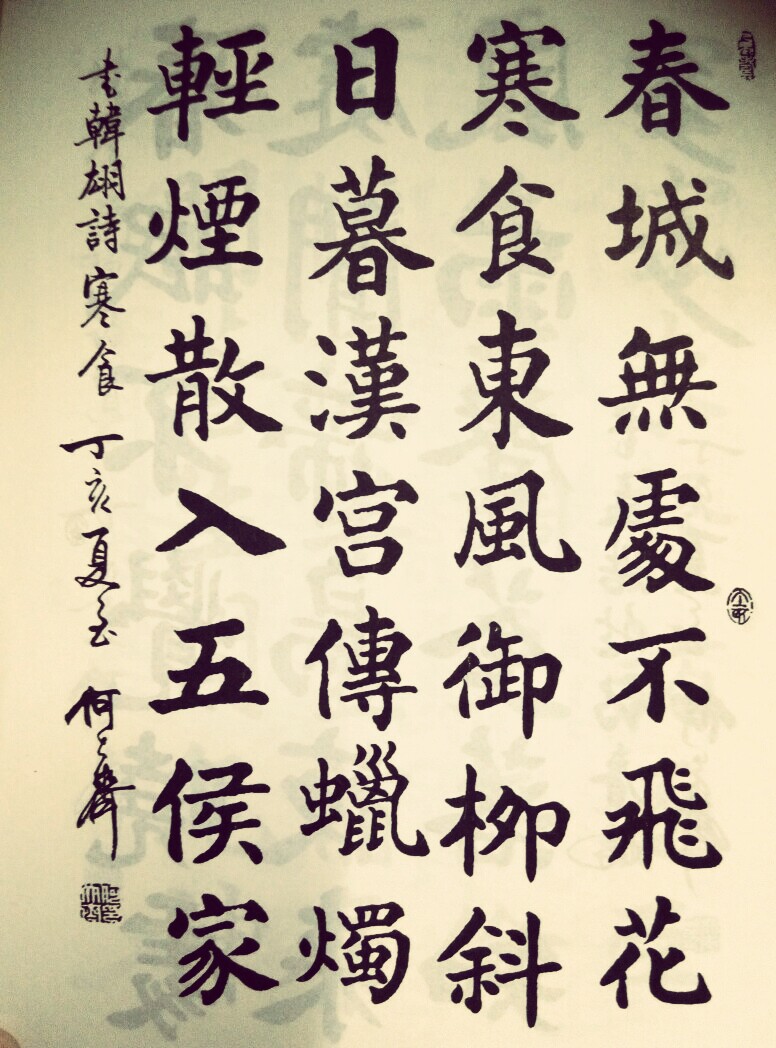 春城無處不飛花
寒食東風御柳斜
日暮漢宮傳蠟燭
輕煙散入五侯家
书韓翃詩寒食 丁亥夏至 何